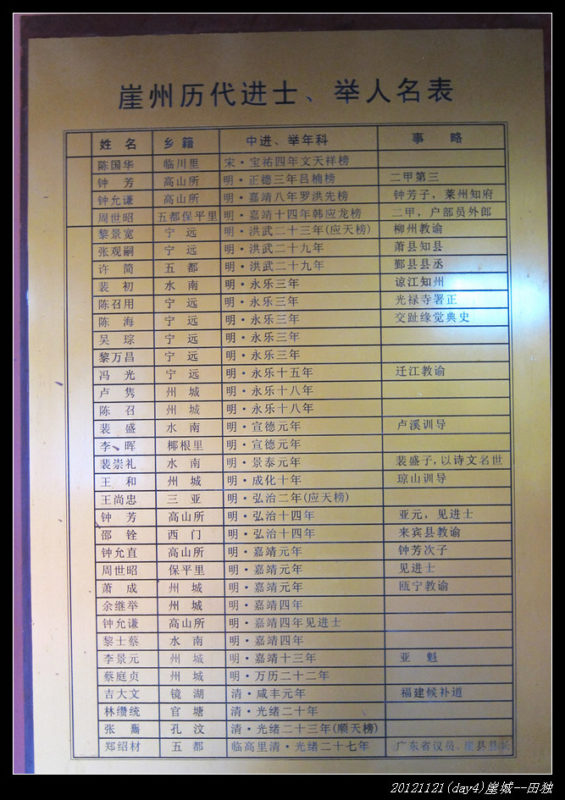 崖州历代进士、举人名表
姓 名 乡 籍 中进、举年科 事 略
陈国华 临川里 宋·宝祐四年文天祥榜
钟 芳 高山所 明·正德三年吕楠榜 二甲第三
钟允谦 高山所 明·嘉靖八年罗洪先榜 钟芳子，莱州知府
周世昭 五都保平里 明·嘉靖十四年韩应龙榜 二甲，户部员外郎
黎景宽 宁 远 明·洪武二十三年(应天榜) 柳州教谕
张观嗣 宁 远 明·洪武二十九年 萧县知县
许 简 五 都 明·洪武二十九年 鄞县县丞
裴 初 水 南 明·永乐三年 谅江知州
陈召用 宁 远 明·永乐三年 光禄寺署正
陈 海 宁 远 明·永乐三年 交趾缘觉典史
吴 琮 宁 远 明·永乐三年
黎万昌 宁 远 明·永乐三年
冯 光 宁 远 明·永乐十五年 迁江教谕
卢 隽 州 城 明·永乐十八年
陈 召 州 城 明·永乐十八年
裴 盛 水 南 明·宣德元年 卢溪训导
李 晖 椰根里 明·宣德元年
裴崇礼 水 南 明·景泰元年 裴盛子，以诗文名世
王 和 州 城 明·成化十年 琼山训导
王尚忠 三 亚 明·弘治二年(应天榜)
钟 芳 高山所 明·弘治十四年 亚元，见进士
邵 铨 西 门 明·弘治十四年 来宾县教谕
钟允直 高山所 明·嘉靖元年 钟芳次子
周世昭 保平里 明·嘉靖元年 见进士
萧 成 州 城 明·嘉靖元年 瓯宁教谕
余继举 州 城 明·嘉靖四年
钟允谦 高山所 明·嘉靖四年见进士
黎士蔡 水 南 明·嘉靖四年
李景元 州 城 明·嘉靖十三年 亚 魁
蔡庭贞 州 城 明·万历二十二年
吉大文 镜 湖 清·咸丰元年 福建候补道
林缵统 官 塘 清·光绪二十年
张 孔 汶 清·光绪二十三年(顺天榜)
郑绍材 五 都 临高里清·光绪二十七年 广东省议员、崖县县长
20121121(day4)崖城--田独